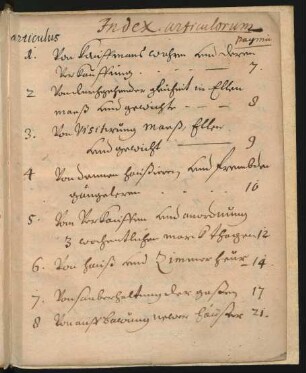 Index articulorum
articulus
pagina
1. Von Kauffmans wahren und deren
Verkauffung 7
2 Von durchgehender gleicheit in Ellen
maaß und gewichte 8
3. Von Visitirung maaß, Ellen
und gewicht 9
4 Von denen haußirern, und frembden
10
5. Vom Verkauffen und anordnung
3 wochentlichen marckthagen 12
6. Von hauß und Zimmer heur 14
7. Von sauberhaltung der gaßen 17
8 Von auffbawung newer häußer 21